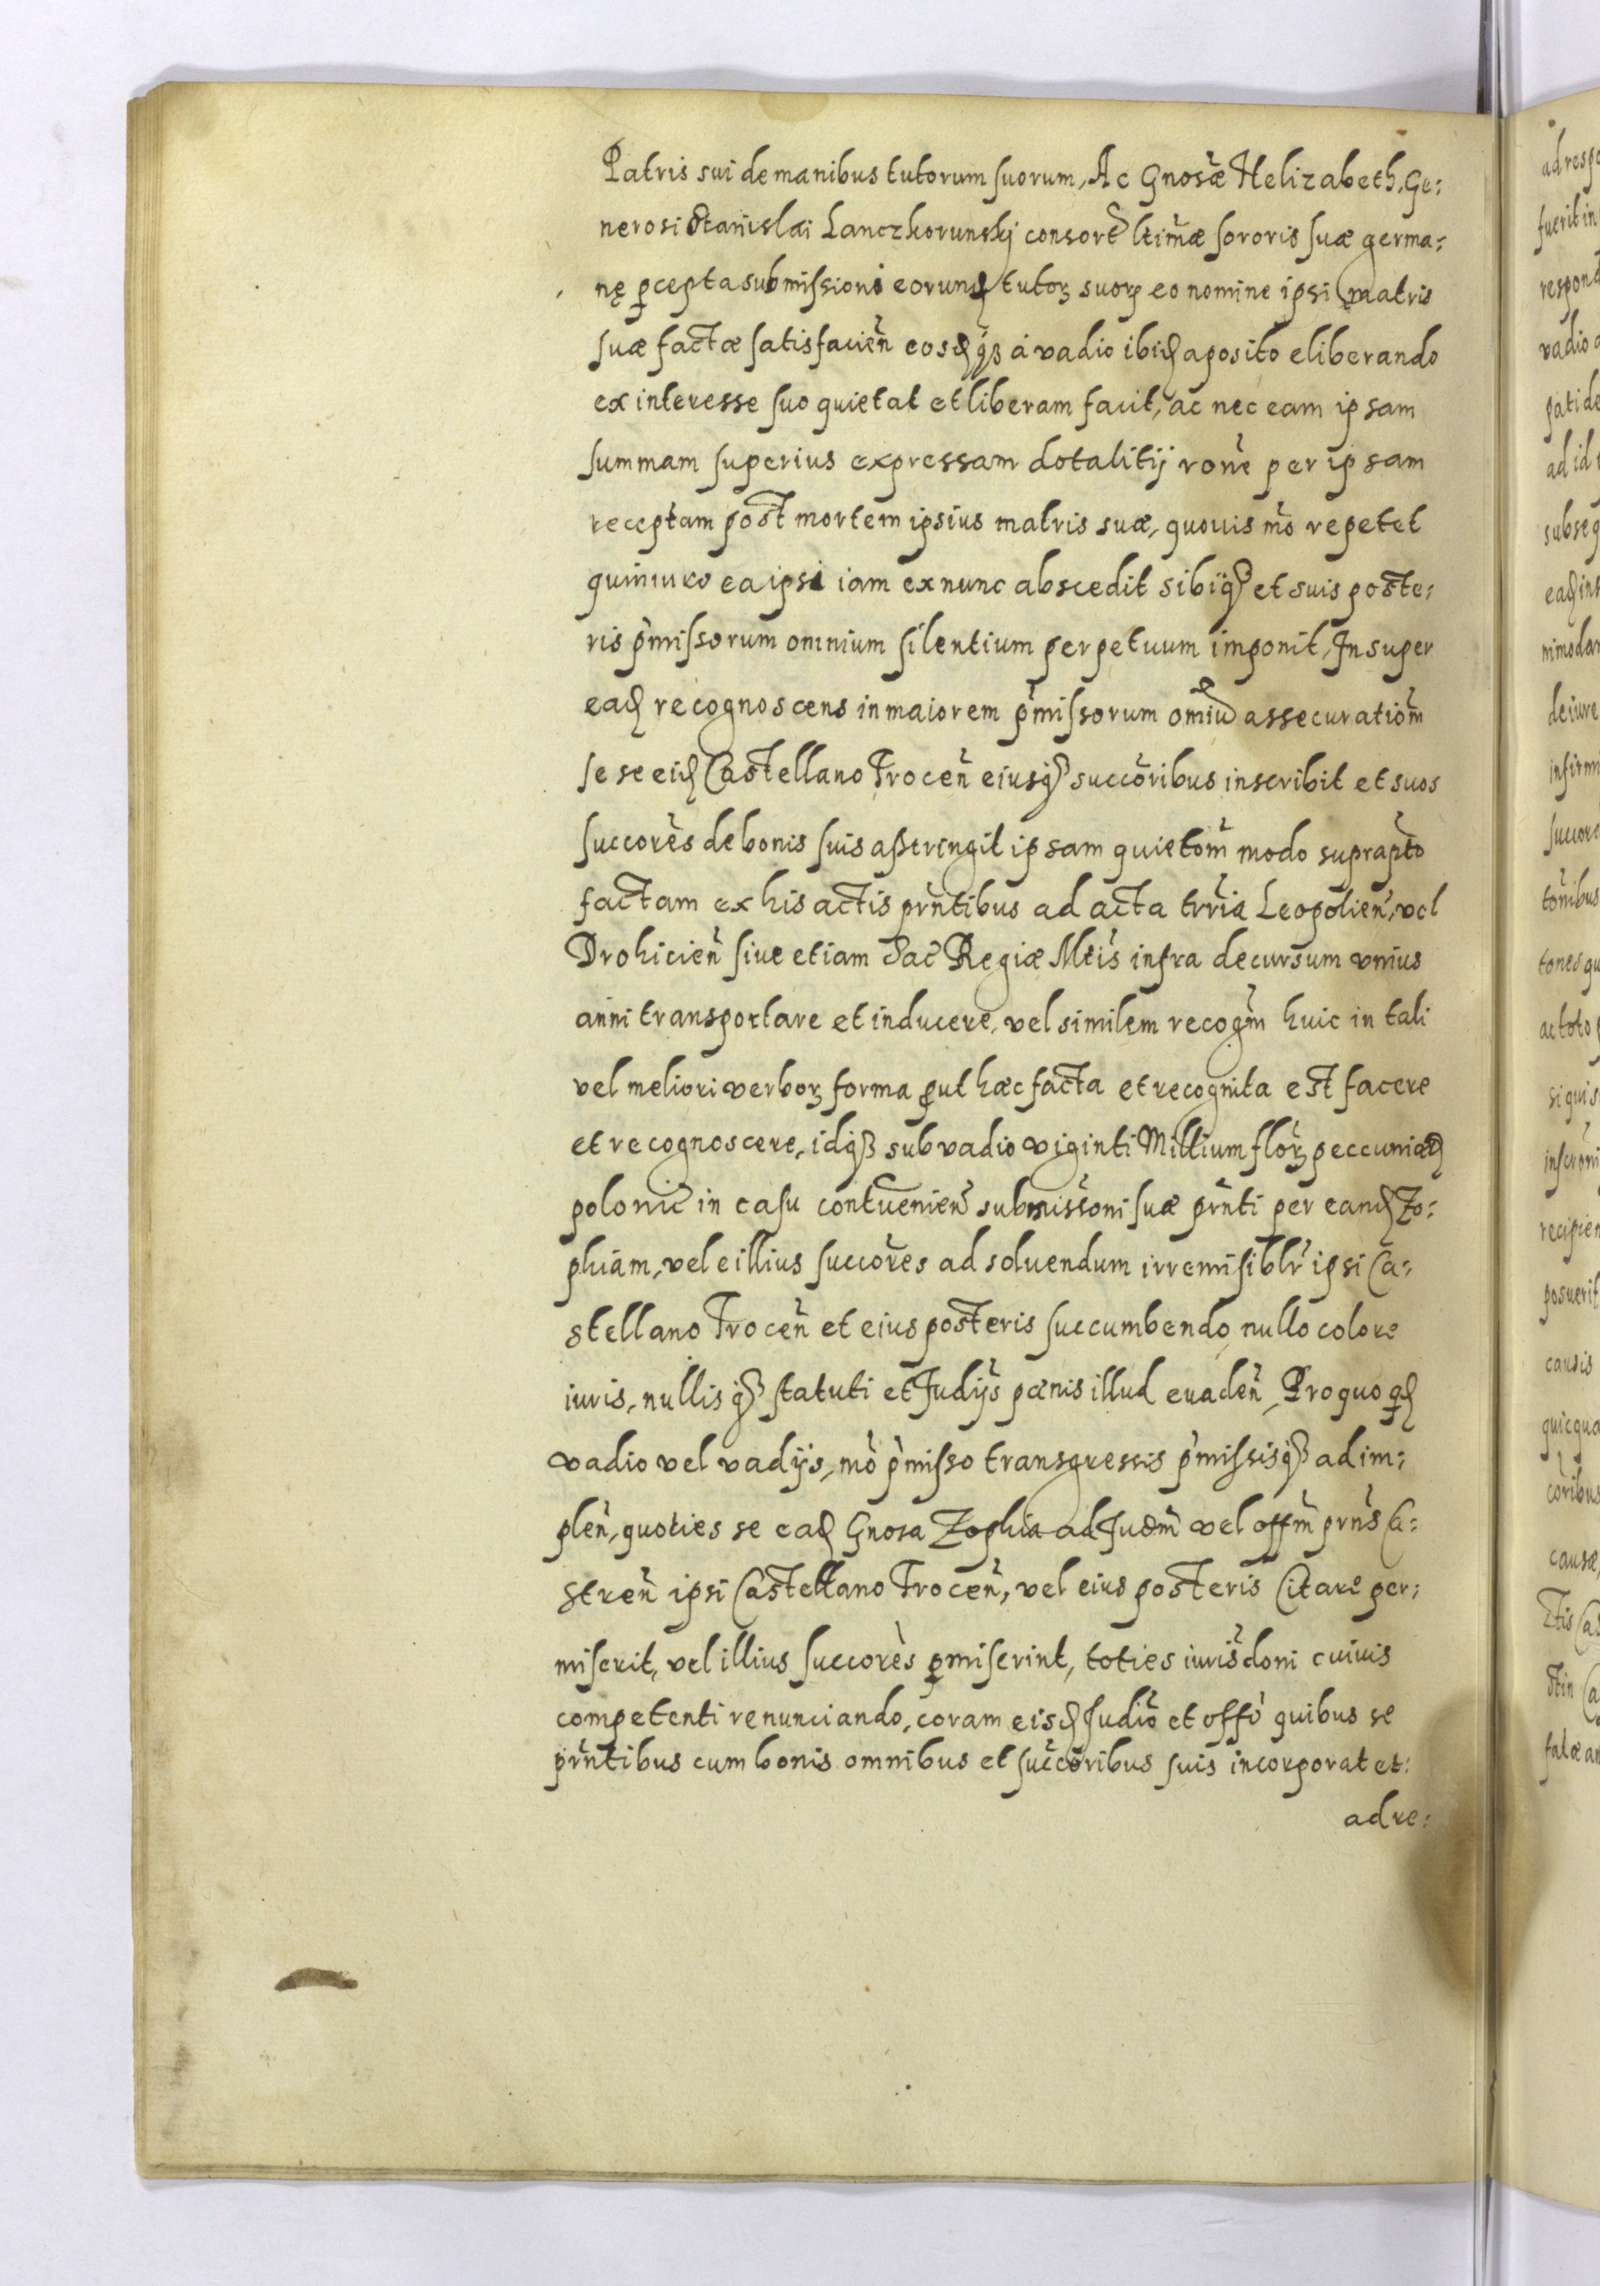 Patris sui de manibus tutorum suorum, Ac Gnosæ Helizabeth, Ge:
nerosi Stanislai Lanczkorunskj consort ltimæ sororis suæ germa:
nę pcepta submissioni eorund tutoꝝ suoꝝ eo nomine ipsi matris
suæ factæ satisfacien eosdqꝫ a vadio ibid aposito eliberando
ex interesse suo quietat et liberam facit, ac nec eam ipsam
summam superius expressam dotalitij rone per ipsam
receptam post mortem ipsius matris suæ, quouis mo repetet
quinimo ea ipsi iam ex nunc abscedit sibiqꝫ et suis poste:
ris pmissorum omnium silentium perpetuum imponit, Insuper
ead recognoscens in maiorem pmissorum omiu assecuratiom
se se eid Castellano Trocen eiusqꝫ succoribus inscribit et suos
succores de bonis suis astringit ipsam quietom modo suprapto
factam ex his actis prntibus ad acta trria Leopolien, vel
Drohicien siue etiam Sac Regiæ Mtis infra decursum vnius
anni transportare et inducere, vel similem recogm huic in tali
vel meliori verboꝝ forma put hæc facta et recognita est facere
et recognoscere, idqꝫ sub vadio viginti Millium floꝝ peccuniæ
polonic in casu contuenien submissoni suæ prnti per eand Zo:
phiam, vel eillius succores ad soluendum irremisiblr ipsi Ca:
stellano Trocen et eius posteris succumbendo, nullo colore
iuris, nullisqꝫ statuti et Judijs pœnis illud euaden, Pro quo qd
vadio vel vadijs, mo pmisso transgressis pmissisqꝫ adim:
plen, quoties se ead Gnosa Zophia ad Judm vel offm prns Ca:
stren ipsi Castellano Trocen, vel eius posteris Citare per:
miserit, vel illius succores pmiserint, toties iurisdoni cuiuis
competenti renunciando, coram eisd Judio et offo quibus se
prntibus cum bonis omnibus et succoribus suis incorporat et:
ad re: